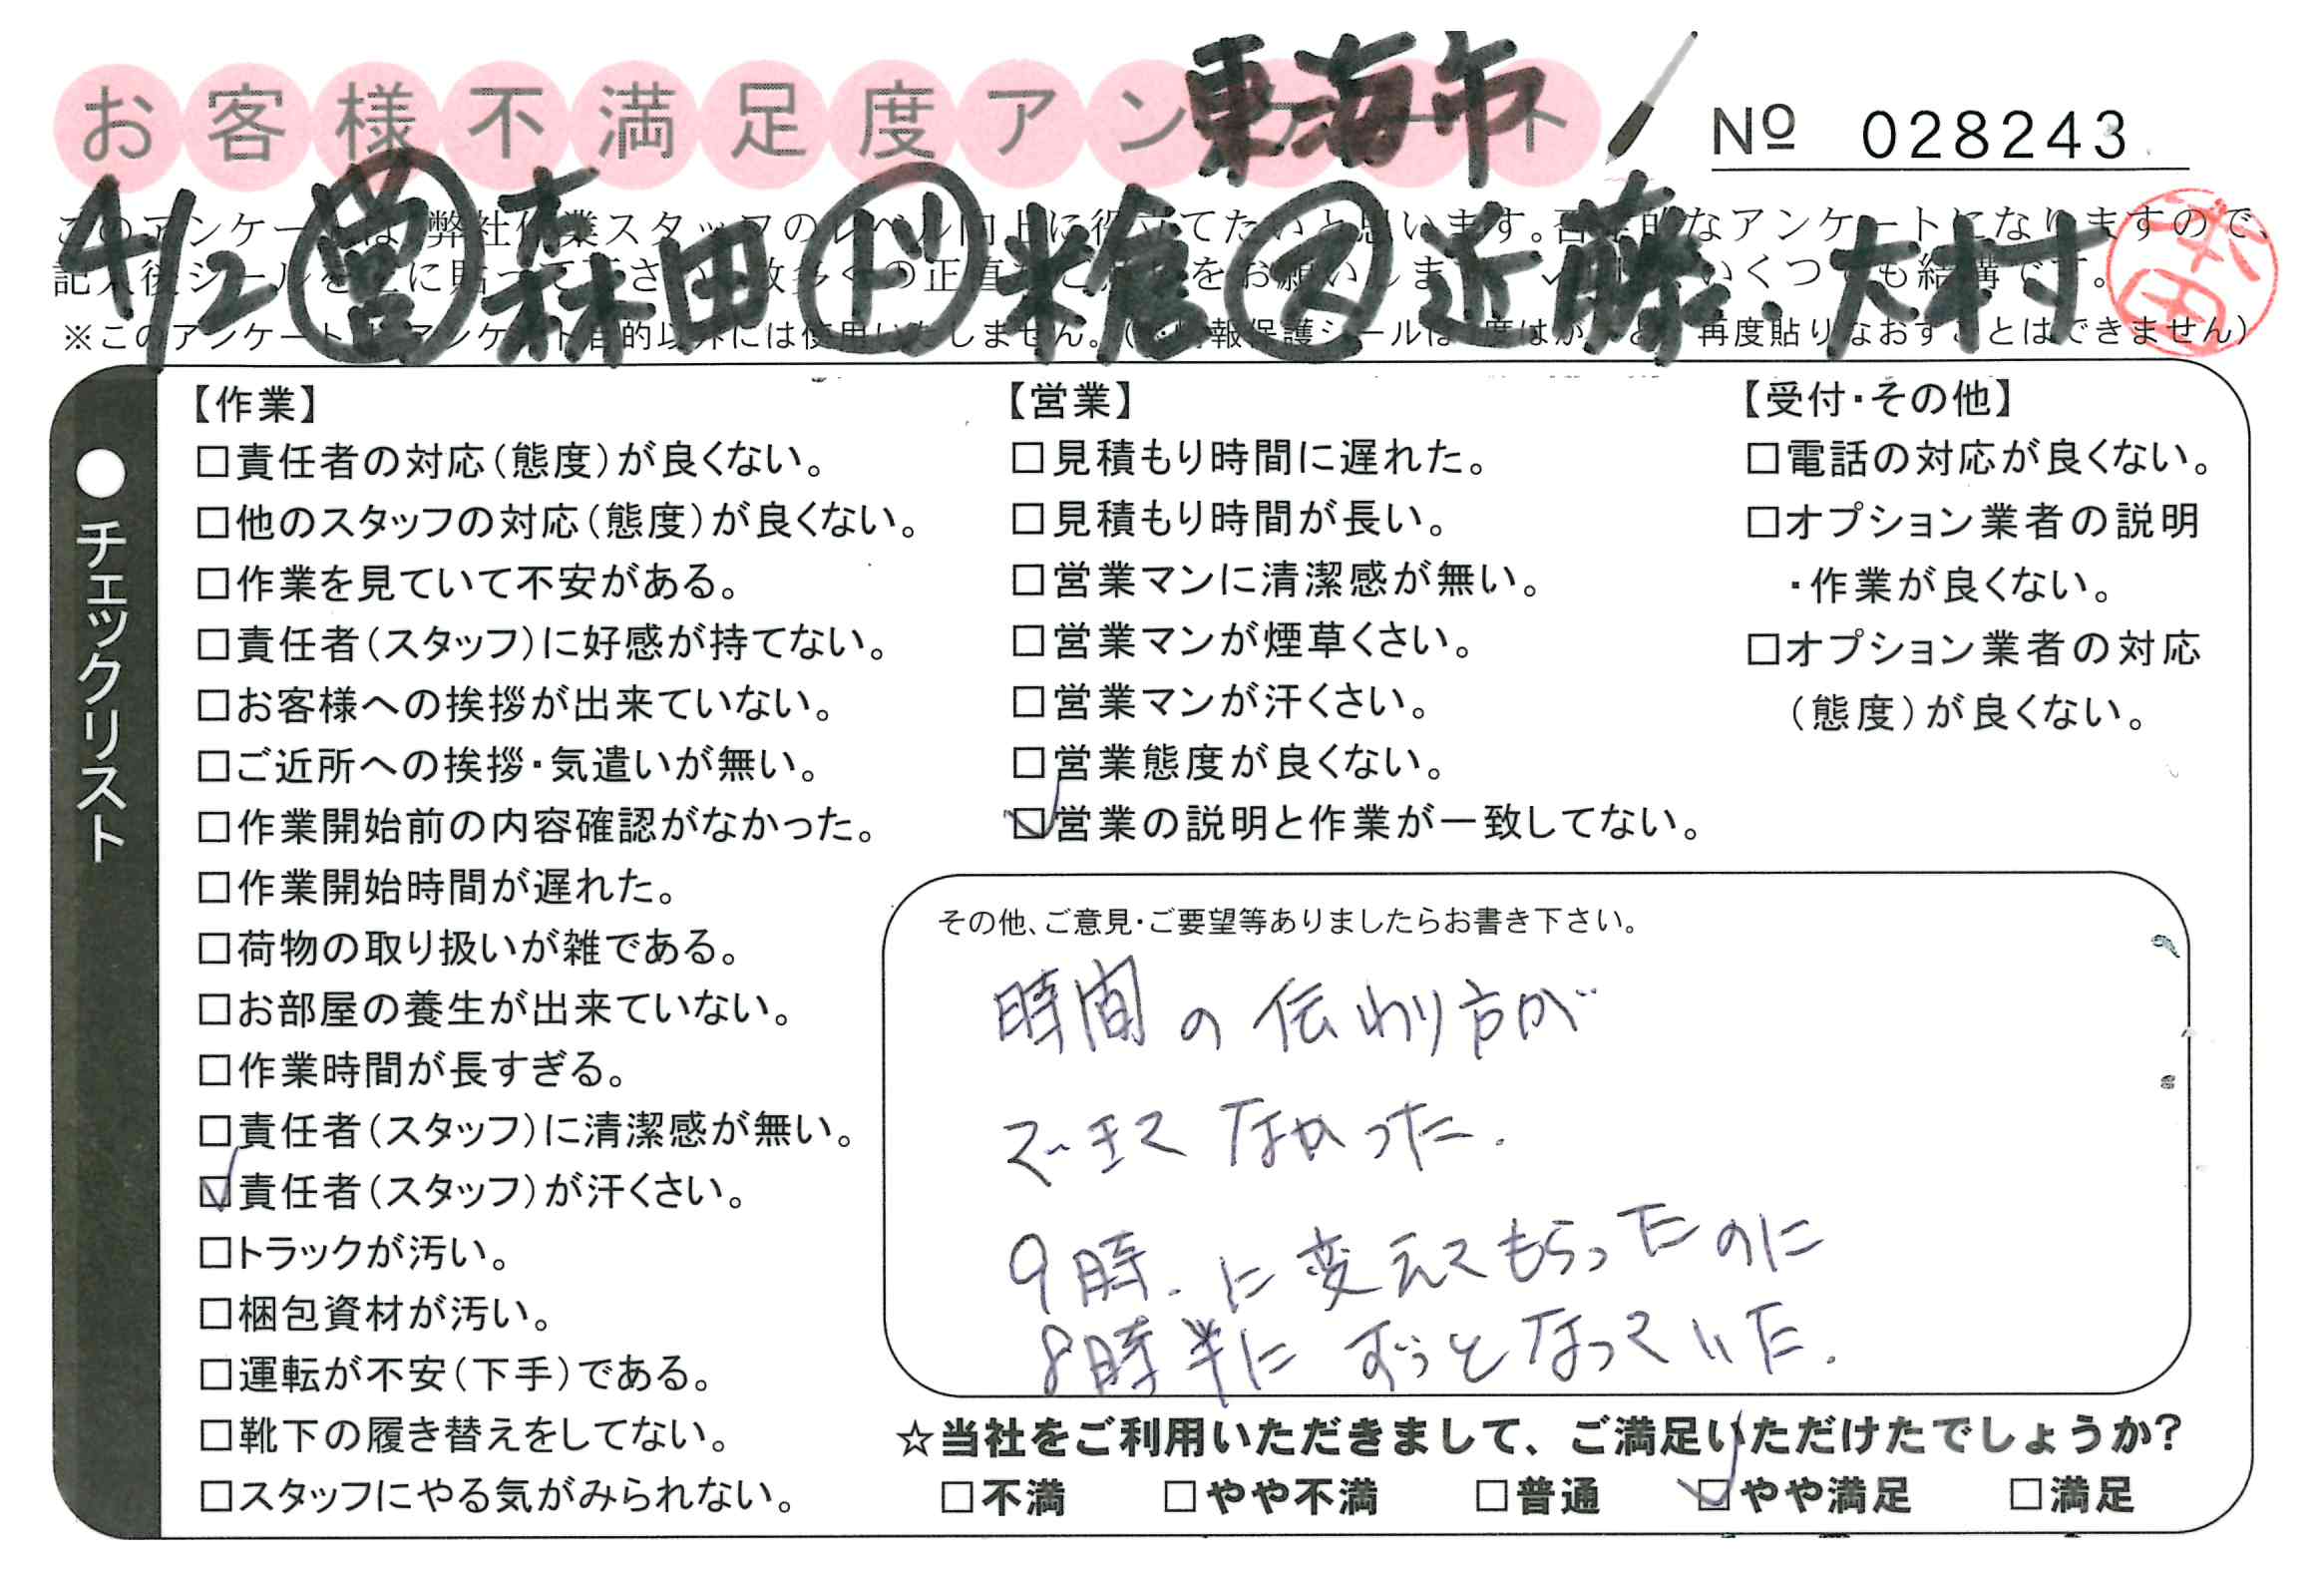 お客様不満足度アンケート
東海市
No 028243
4/2 営 森田 ド 米倉 ス 近藤・大村
このアンケートは 弊社作業スタッフのレベル向上に役立てたいと思います。否定的なアンケートになりますので、
※このアンケートは、アンケート目的以外には使用いたしません。(※情報保護シールは1度はがすと、再度貼りなおすことはできません)
●チェックリスト
【作業】
□責任者の対応(態度)が良くない。
□他のスタッフの対応(態度)が良くない。
□作業を見ていて不安がある。
□責任者(スタッフ)に好感が持てない。
□お客様への挨拶が出来ていない。
□ご近所への挨拶・気遣いが無い。
□作業開始前の内容確認がなかった。
□作業開始時間が遅れた。
□荷物の取り扱いが雑である。
□お部屋の養生が出来ていない。
□作業時間が長すぎる。
□責任者(スタッフ)に清潔感が無い。
☑責任者(スタッフ)が汗くさい。
□トラックが汚い。
□梱包資材が汚い。
□運転が不安(下手)である。
□靴下の履き替えをしてない。
□スタッフにやる気がみられない。
【営業】
□見積もり時間に遅れた。
□見積もり時間が長い。
□営業マンに清潔感が無い。
□営業マンが煙草くさい。
□営業マンが汗くさい。
□営業態度が良くない。
☑営業の説明と作業が一致してない。
【受付・その他】
□電話の対応が良くない。
□オプション業者の説明
・作業が良くない。
□オプション業者の対応
(態度)が良くない。
その他、ご意見・ご要望等ありましたらお書き下さい。
時間の伝わり方が
できてなかった.
9時.に変えてもらったのに
8時半にずっとなっていた.
☆当社をご利用いただきまして、ご満足いただけたでしょうか?
□不満 □やや不満 □普通 ☑やや満足 □満足